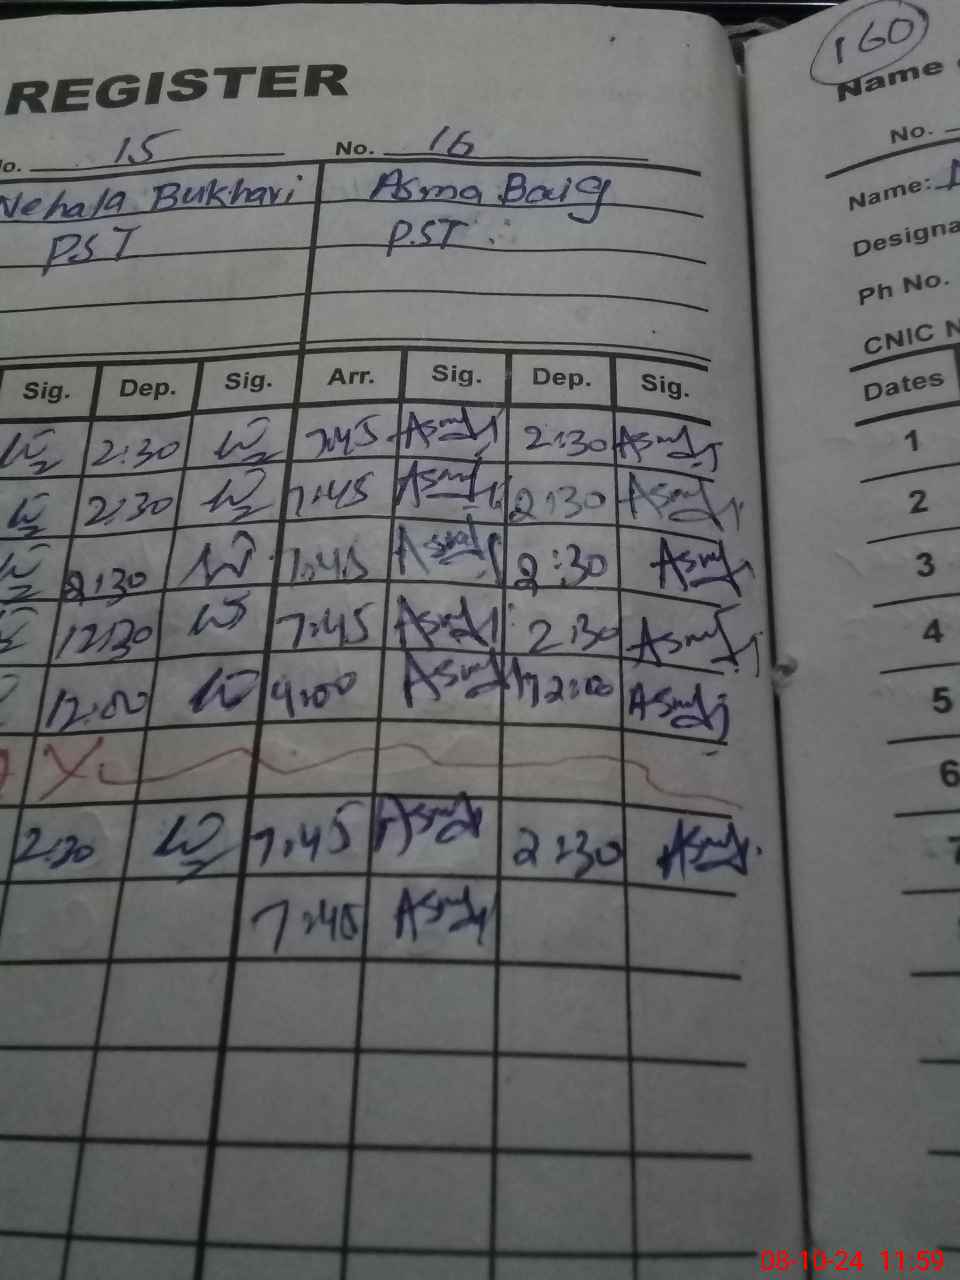 REGISTER
160
Name
No. 15 No. 16
No.
Nehala Bukhari Asma Baig
Name:
P.S.T P.S.T
Designa
Ph No.
CNIC N
Sig. Dep. Sig. Arr. Sig. Dep. Sig.
Dates
2:30 7:45 Asma 2:30 Asma
1
2:30 7:45 Asma 2:30 Asma
2
2:30 7:45 Asma 2:30 Asma
3
12:30 7:45 Asma 2:30 Asma
4
12:00 9:00 Asma 12:00 Asma
5
6
2:30 7:45 Asma 2:30 Asma
7
7:45 Asma
08-10-24 11:59